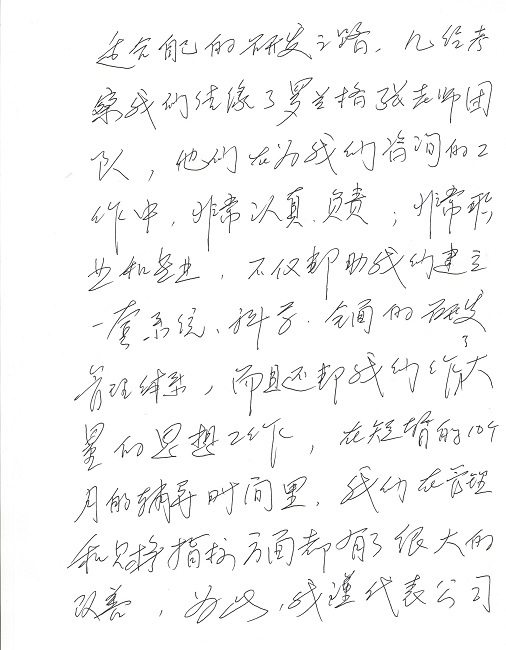 适合自己的研发之路。几经考
察我们结缘了罗兰格张老师团
队，他们在为我们咨询的工
作中，非常认真、负责；非常职
业和专业，不仅帮助我们建立
一套系统、科学、全面的研发
管理体系，而且还帮我们作了大
量的思想工作，在短暂的10个
月的辅导时间里，我们在管理
和 指 方面都有了很大的
改善，为此，我谨代表公司